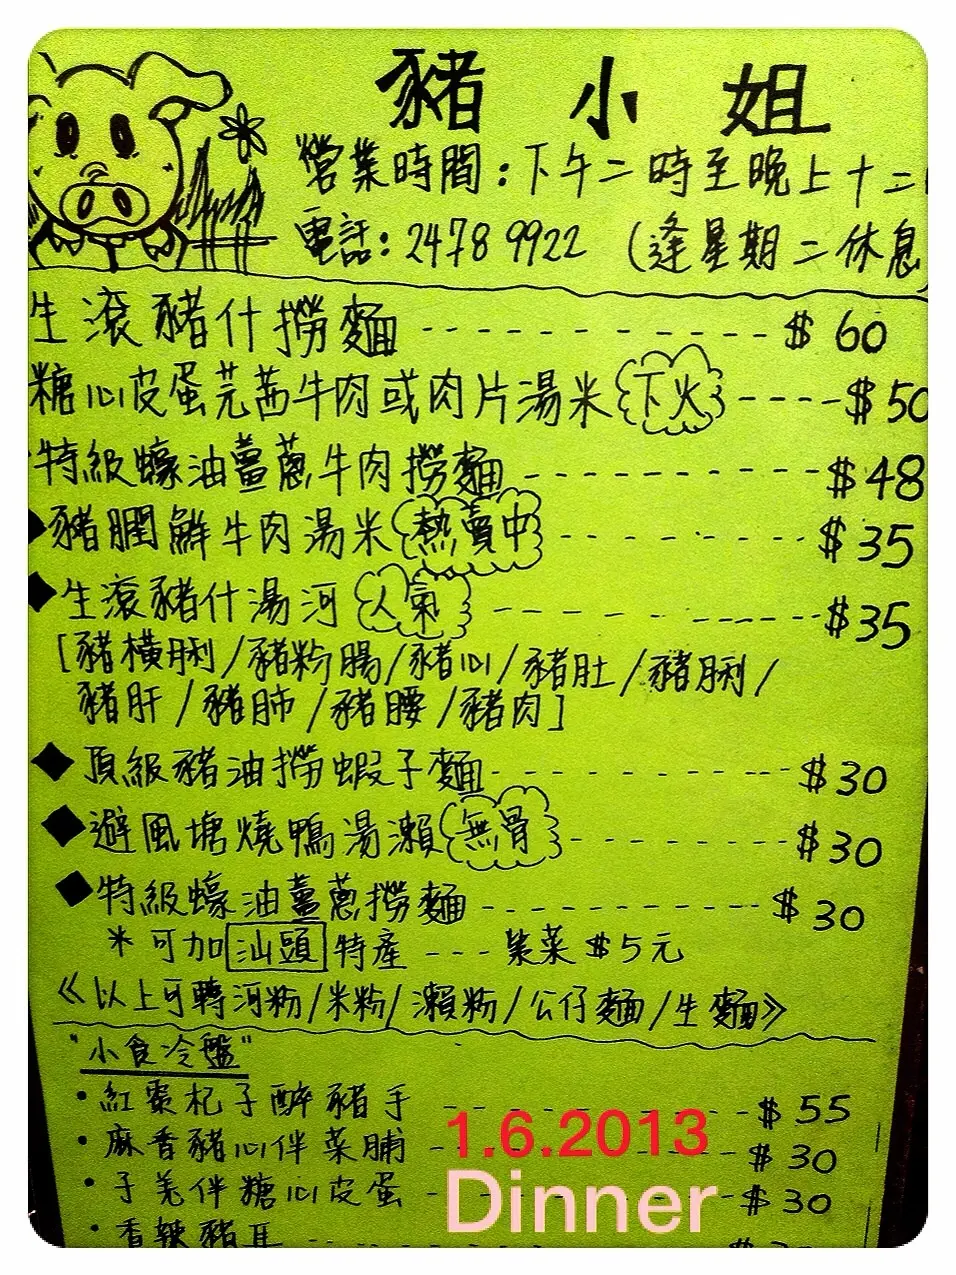 豬小姐
營業時間：下午二時至晚上十二
電話：2478 9922 (逢星期二休息
生滾豬什撈麵 ----------- $ 60
糖心皮蛋芫茜牛肉或肉片湯米 下火 ---- $ 50
特級蠔油薑蔥牛肉撈麵 ---------- $48
◆豬膶鮮牛肉湯米 熱賣中 -------- $35
◆生滾豬什湯河 人氣 --------- $35
[豬橫脷/豬粉腸/豬心/豬肚/豬脷/
豬肝/豬肺/豬腰/豬肉]
◆頂級豬油撈蝦子麵 ---------- $30
◆避風塘燒鴨湯瀨 無骨 ------- $30
◆特級蠔油薑蔥撈麵 ---------- $30
*可加汕頭特產 --- 紫菜 $5元
《以上可轉河粉/米粉/瀨粉/公仔麵/生麵》
"小食冷盤"
・紅棗杞子醉豬手 ------- $ 55
・麻香豬心伴菜脯 ------- $ 30
・子羌伴糖心皮蛋 ------- $ 30
・香辣豬耳
1.6.2013
Dinner